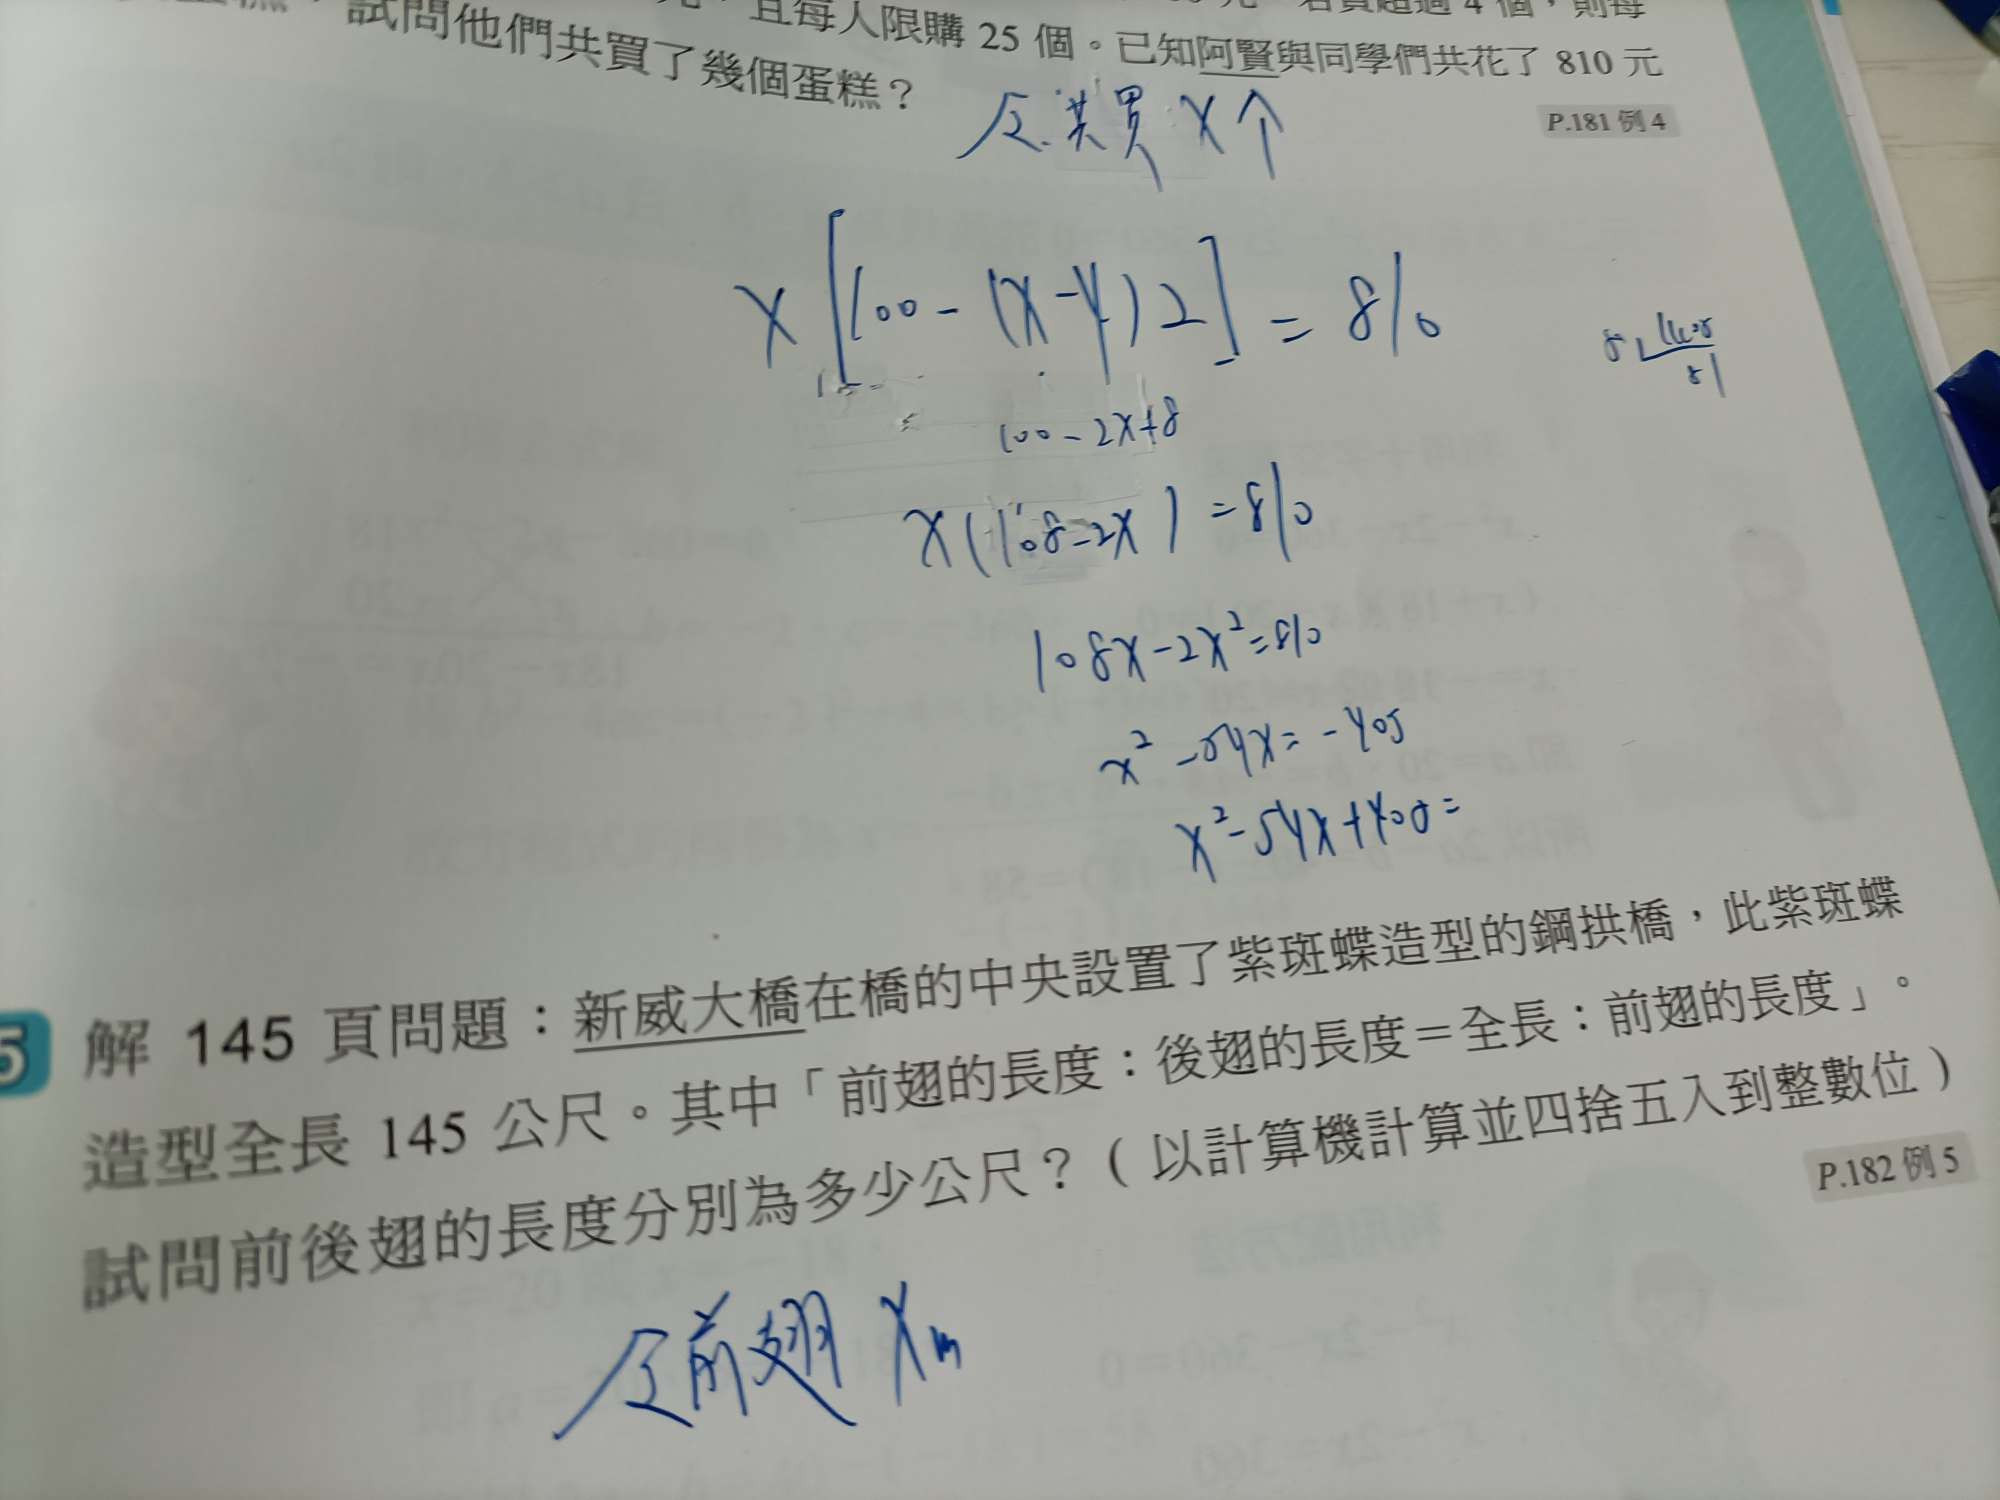 且每人限購 25 個。已知阿賢與同學們共花了 810 元
試問他們共買了幾個蛋糕？
P.181 例 4
令共買 X 个
X[100-(X-4)2]=810
5 405
81
100-2X+8
X(108-2X)=810
108X-2X²=810
X²-54X=-405
X²-54X+405=
5 解 145 頁問題：新威大橋在橋的中央設置了紫斑蝶造型的鋼拱橋，此紫斑蝶
造型全長 145 公尺。其中「前翅的長度：後翅的長度＝全長：前翅的長度」。
試問前後翅的長度分別為多少公尺？（以計算機計算並四捨五入到整數位）
P.182 例 5
令前翅 Xm